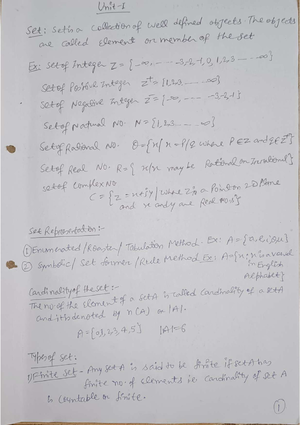 Unit-1
Set: Set is a collection of well defined objects. The objects
are called element or member of the set
Ex: Set of integer Z = {-∞, ... -3,-2,-1,0,1,2,3 ... ∞}
Set of Positive Integer Z⁺ = {1,2,3 ... ∞}
Set of Negative Integer Z⁻ = {-∞, ... -3,-2,-1}
Set of Natural No. N = {1,2,3 ... ∞}
Set of Rational No. Q = {x/x = P/q where P∈Z and q∈Z⁺}
Set of Real No. R = {x/x may be Rational or Irrational}
Set of Complex No.
C = {z = x+iy | where z is a Point on 2D Plane
and x and y are Real no.s}
Set Representation:-
① Enumerated / Roster / Tabulation Method. Ex: A = {a,e,i,o,u}
② Symbolic / Set former / Rule Method Ex: A = {x: x is a vowel
in English
Alphabet}
Cardinality of the set:-
The no. of the element of a set A is called Cardinality of a set A
and it is denoted by n(A) or |A|.
A = {0,1,2,3,4,5} |A|=6
Types of set.
1) Finite set - Any set A is said to be finite if set A has
finite no. of elements i.e. Cardinality of set A
is countable or finite.
①